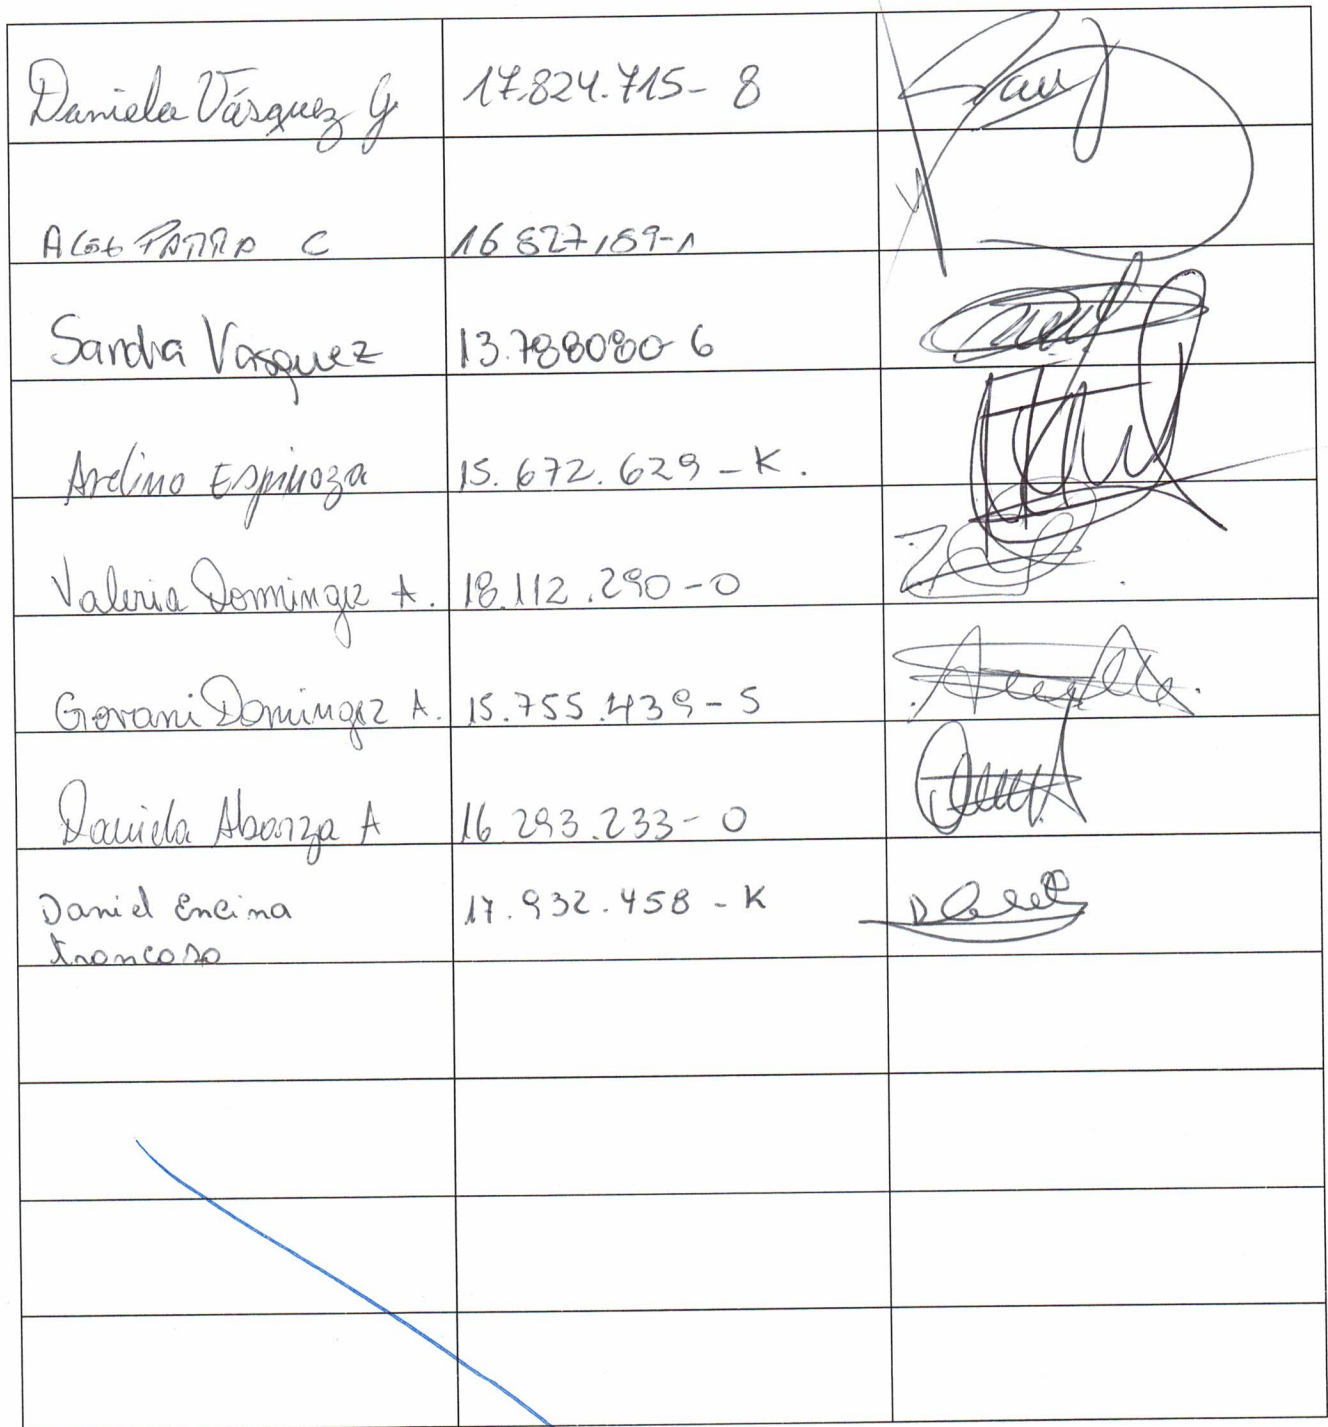 Daniela Vásquez G 17.824.715-8
Alex PARRA C 16 827,159-1
Sandra Vasquez 13.788080-6
Avelino Espinoza 15.672.629-K.
Valeria Domingez A. 18.112.290-0
Govani Domingez A. 15.755.439-5
Daniela Abarza A 16.293.233-0
Daniel Encina 17.932.458-K
troncoso